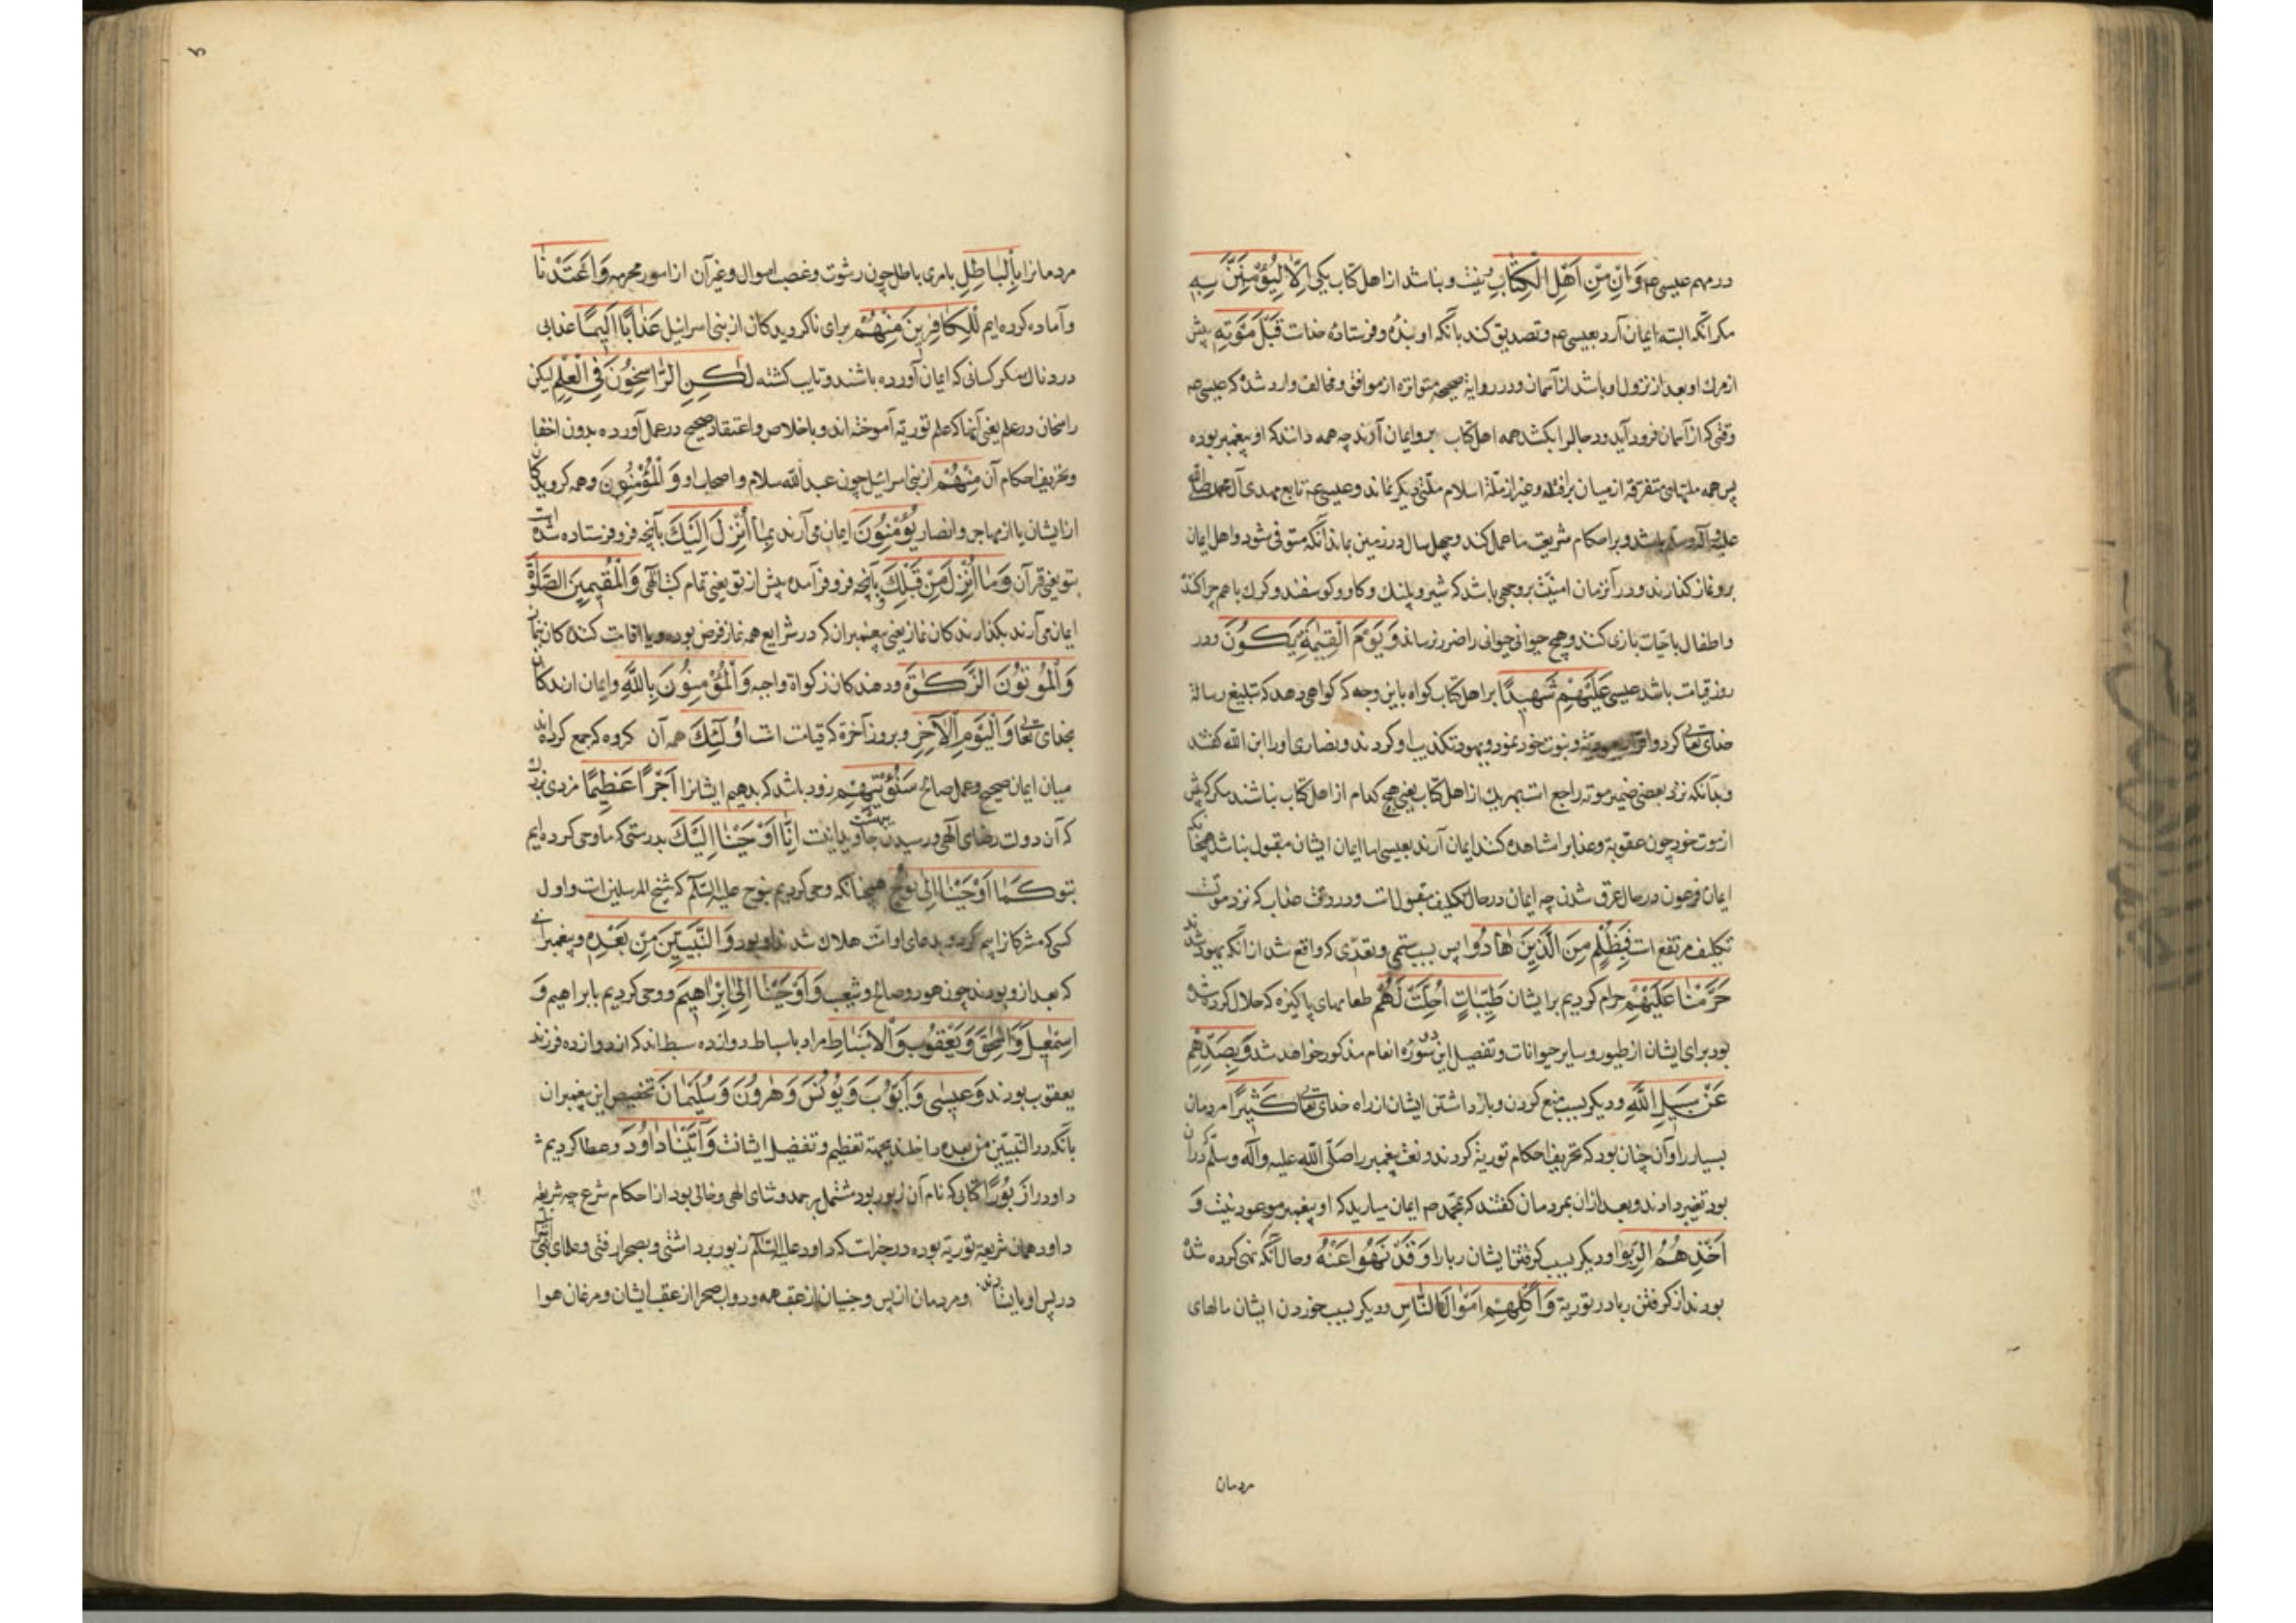 در مهم عیسی عم وَاِنْ مِنْ اَهْلِ الْكِتَابِ و نیست و نباشد از اهل کتاب یکی اِلَّا لَيُؤْمِنَنَّ بِهِ
مکر آنکه البته ایمان آرد بعیسی عم و تصدیق کند بآنکه او بنده و فرستاده خداست قَبْلَ مَوْتِهِ پیش
از مرك او بعد از نزول او باشد از آسمان و در روایة صحیحه متواتره از موافق و مخالف وارد شده که عیسی عم
وقتی که از آسمان فرود آید و دجال را بکشد همه اهل کتاب برو ایمان آورند چه همه دانند که او پیغمبر بوده
پس همه ملتهای متفرقه از میان برافتد و غیر از ملة اسلام ملتی دیکر نماند و عیسی عم تابع مهدی آل محمد صلی الله
علیه و آله وسلم باشد و بر احکام شریعت ما عمل کند و چهل سال در زمین بماند آنکه متوفی شود و اهل ایمان
برو نماز کذارند و در آنزمان امنیت بروجهی باشد که شیر و پلنك و کاو و کوسفند و کرك باهم چرا کنند
و اطفال با حیات بازی کنند و هیچ حیوانی حیوانی را ضرر نرساند وَيَوْمَ الْقِيٰمَةِ يَكُونُ و در
روز قیامت باشد عیسی عَلَيْهِمْ شَهِيدًا بر اهل کتاب کواه باین وجه که کواهی دهد که تبلیغ رسالة
خدای تعالی کرد و اقرار بعبودیة و نبوت خود نمود و یهود تکذیب او کردند و نصاری او را ابن الله کفتند
و بدآنکه نزد بعضی ضمیر موته راجع است بهریك از اهل کتاب یعنی هیچ کدام از اهل کتاب نباشند مکر که پیش
از موت خود چون عقوبة و عذاب را مشاهده کنند ایمان آرند بعیسی اما ایمان ایشان مقبول نباشد همچنانکه
ایمان فرعون در حال غرق شدن چه ایمان در حال تکلیف مقبول است و در وقت عذاب که نزد موتست
تکلیف مرتفع است فَبِظُلْمٍ مِنَ الَّذِينَ هَادُوا پس بسبب ستمی و تعدی که واقع شد از آنکه یهود شدند
حَرَّمْنَا عَلَيْهِمْ حرام کردیم بر ایشان طَيِّبَاتٍ اُحِلَّتْ لَهُمْ طعامهای پاکیزه که حلال کرده شده
بود برای ایشان از طیور و سایر حیوانات و تفصیل این در سورۀ انعام مذکور خواهد شد وَبِصَدِّهِمْ
عَنْ سَبِيلِ اللَّهِ و دیکر بسبب منع کردن و باز داشتن ایشان از راه خدای تعالی كَثِيرًا مردمان
بسیار را و آن چنان بود که تحریف احکام توریة کردند و نعت پیغمبر را صلّی الله علیه وآله وسلّم که در آن
بود تغییر دادند و بعد از ان بمردمان کفتند که بمحمد ص ایمان میارید که او پیغمبر موعود نیست وَ
اَخْذِهِمُ الرِّبٰوا و دیکر بسبب کرفتن ایشان ربا را وَقَدْ نُهُوا عَنْهُ و حال آنکه نهی کرده شده
بودند از کرفتن ربا در توریة وَاَكْلِهِمْ اَمْوَالَ النَّاسِ و دیکر بسبب خوردن ایشان مالهای
مردمان
مردمانرا بِالْبَاطِلِ بامری باطل چون رشوت و غصب اموال و غیر آن از امور محرمه وَاَعْتَدْنَا
و آماده کرده ایم لِلْكَافِرِينَ مِنْهُمْ برای ناکرویدکان از بنی اسرائیل عَذَابًا اَلِيمًا عذابی
دردناك مکر کسانی که ایمان آورده باشند و تایب کشته لٰكِنِ الرَّاسِخُونَ فِي الْعِلْمِ لیکن
راسخان در علم یعنی آنها که علم توریة آموخته اند و باخلاص و اعتقاد صحیح در عمل آورده بدون اخفا
و تحریف احکام آن مِنْهُمْ از بنی اسرائیل چون عبد الله سلام و اصحاب او وَالْمُؤْمِنُونَ و همه کرویدکان
از ایشان یا از مهاجر و انصار يُؤْمِنُونَ ایمان می آرند بِمَا اُنْزِلَ اِلَيْكَ بآنچه فرو فرستاده شده است
بتو یعنی قرآن وَمَا اُنْزِلَ مِنْ قَبْلِكَ و بآنچه فرو فرآمده پیش از تو یعنی تمام کتب الهی وَالْمُقِيمِينَ الصَّلٰوةَ
ایمان می آرند بکذارندکان نماز یعنی پیغمبران که در شرایع همه نماز فرض بوده و یا اقامت کنندکان نماز
وَالْمُؤْتُونَ الزَّكٰوةَ و دهندکان زکواة واجبه وَالْمُؤْمِنُونَ بِاللَّهِ و ایمان ارندکان
بخدای تعالی وَالْيَوْمِ الْاٰخِرِ و بروز آخرة که قیامت است اُولٰئِكَ همه آن کروه که جمع کرده اند
میان ایمان صحیح و عمل صالح سَنُؤْتِيهِمْ زود باشد که بدهیم ایشانرا اَجْرًا عَظِيمًا مزدی بزرك
که آن دولت رضای الهی و رسیدن بهشت جاویدانیست اِنَّا اَوْحَيْنَا اِلَيْكَ بدرستی که ما وحی کرده ایم
بتو كَمَا اَوْحَيْنَا اِلٰى نُوحٍ همچنانکه وحی کردیم بنوح علیه السّلام که شیخ المرسلین است و اول
کسی که مشرکانرا بیم کرد و بدعای او امت هلاك شدند او بود وَالنَّبِيّينَ مِنْ بَعْدِهِ و پیغمبرانی
که بعد از و بودند چون هود و صالح و شعیب وَاَوْحَيْنَا اِلٰى اِبْرَاهِيمَ و وحی کردیم بابراهیم وَ
اِسْمٰعِيلَ وَاِسْحٰقَ وَيَعْقُوبَ وَالْاَسْبَاطِ مراد باسباط دوازده سبط اند که از دوازده فرزند
یعقوب بودند وَعِيسٰى وَاَيُّوبَ وَيُونُسَ وَهٰرُونَ وَسُلَيْمَانَ تخصیص این پیغمبران
بآنکه در النبیین من بعده داخلند بجهة تعظیم و تفضیل ایشانست وَاٰتَيْنَا دَاوُدَ و عطا کردیم
داود را زَبُورًا کتابی که نام آن زبور بود مشتمل بر حمد و ثنای الهی و خالی بود از احکام شرع چه شریعة
داود همان شریعة توریة بوده در خبرات که داود علیه السّلام زبور برداشتی و بصحرا رفتی و علمای بنی
در پس او بایستادندی و مردمان از پس و جنیان از عقب همه و دواب صحرا از عقب ایشان و مرغان هوا